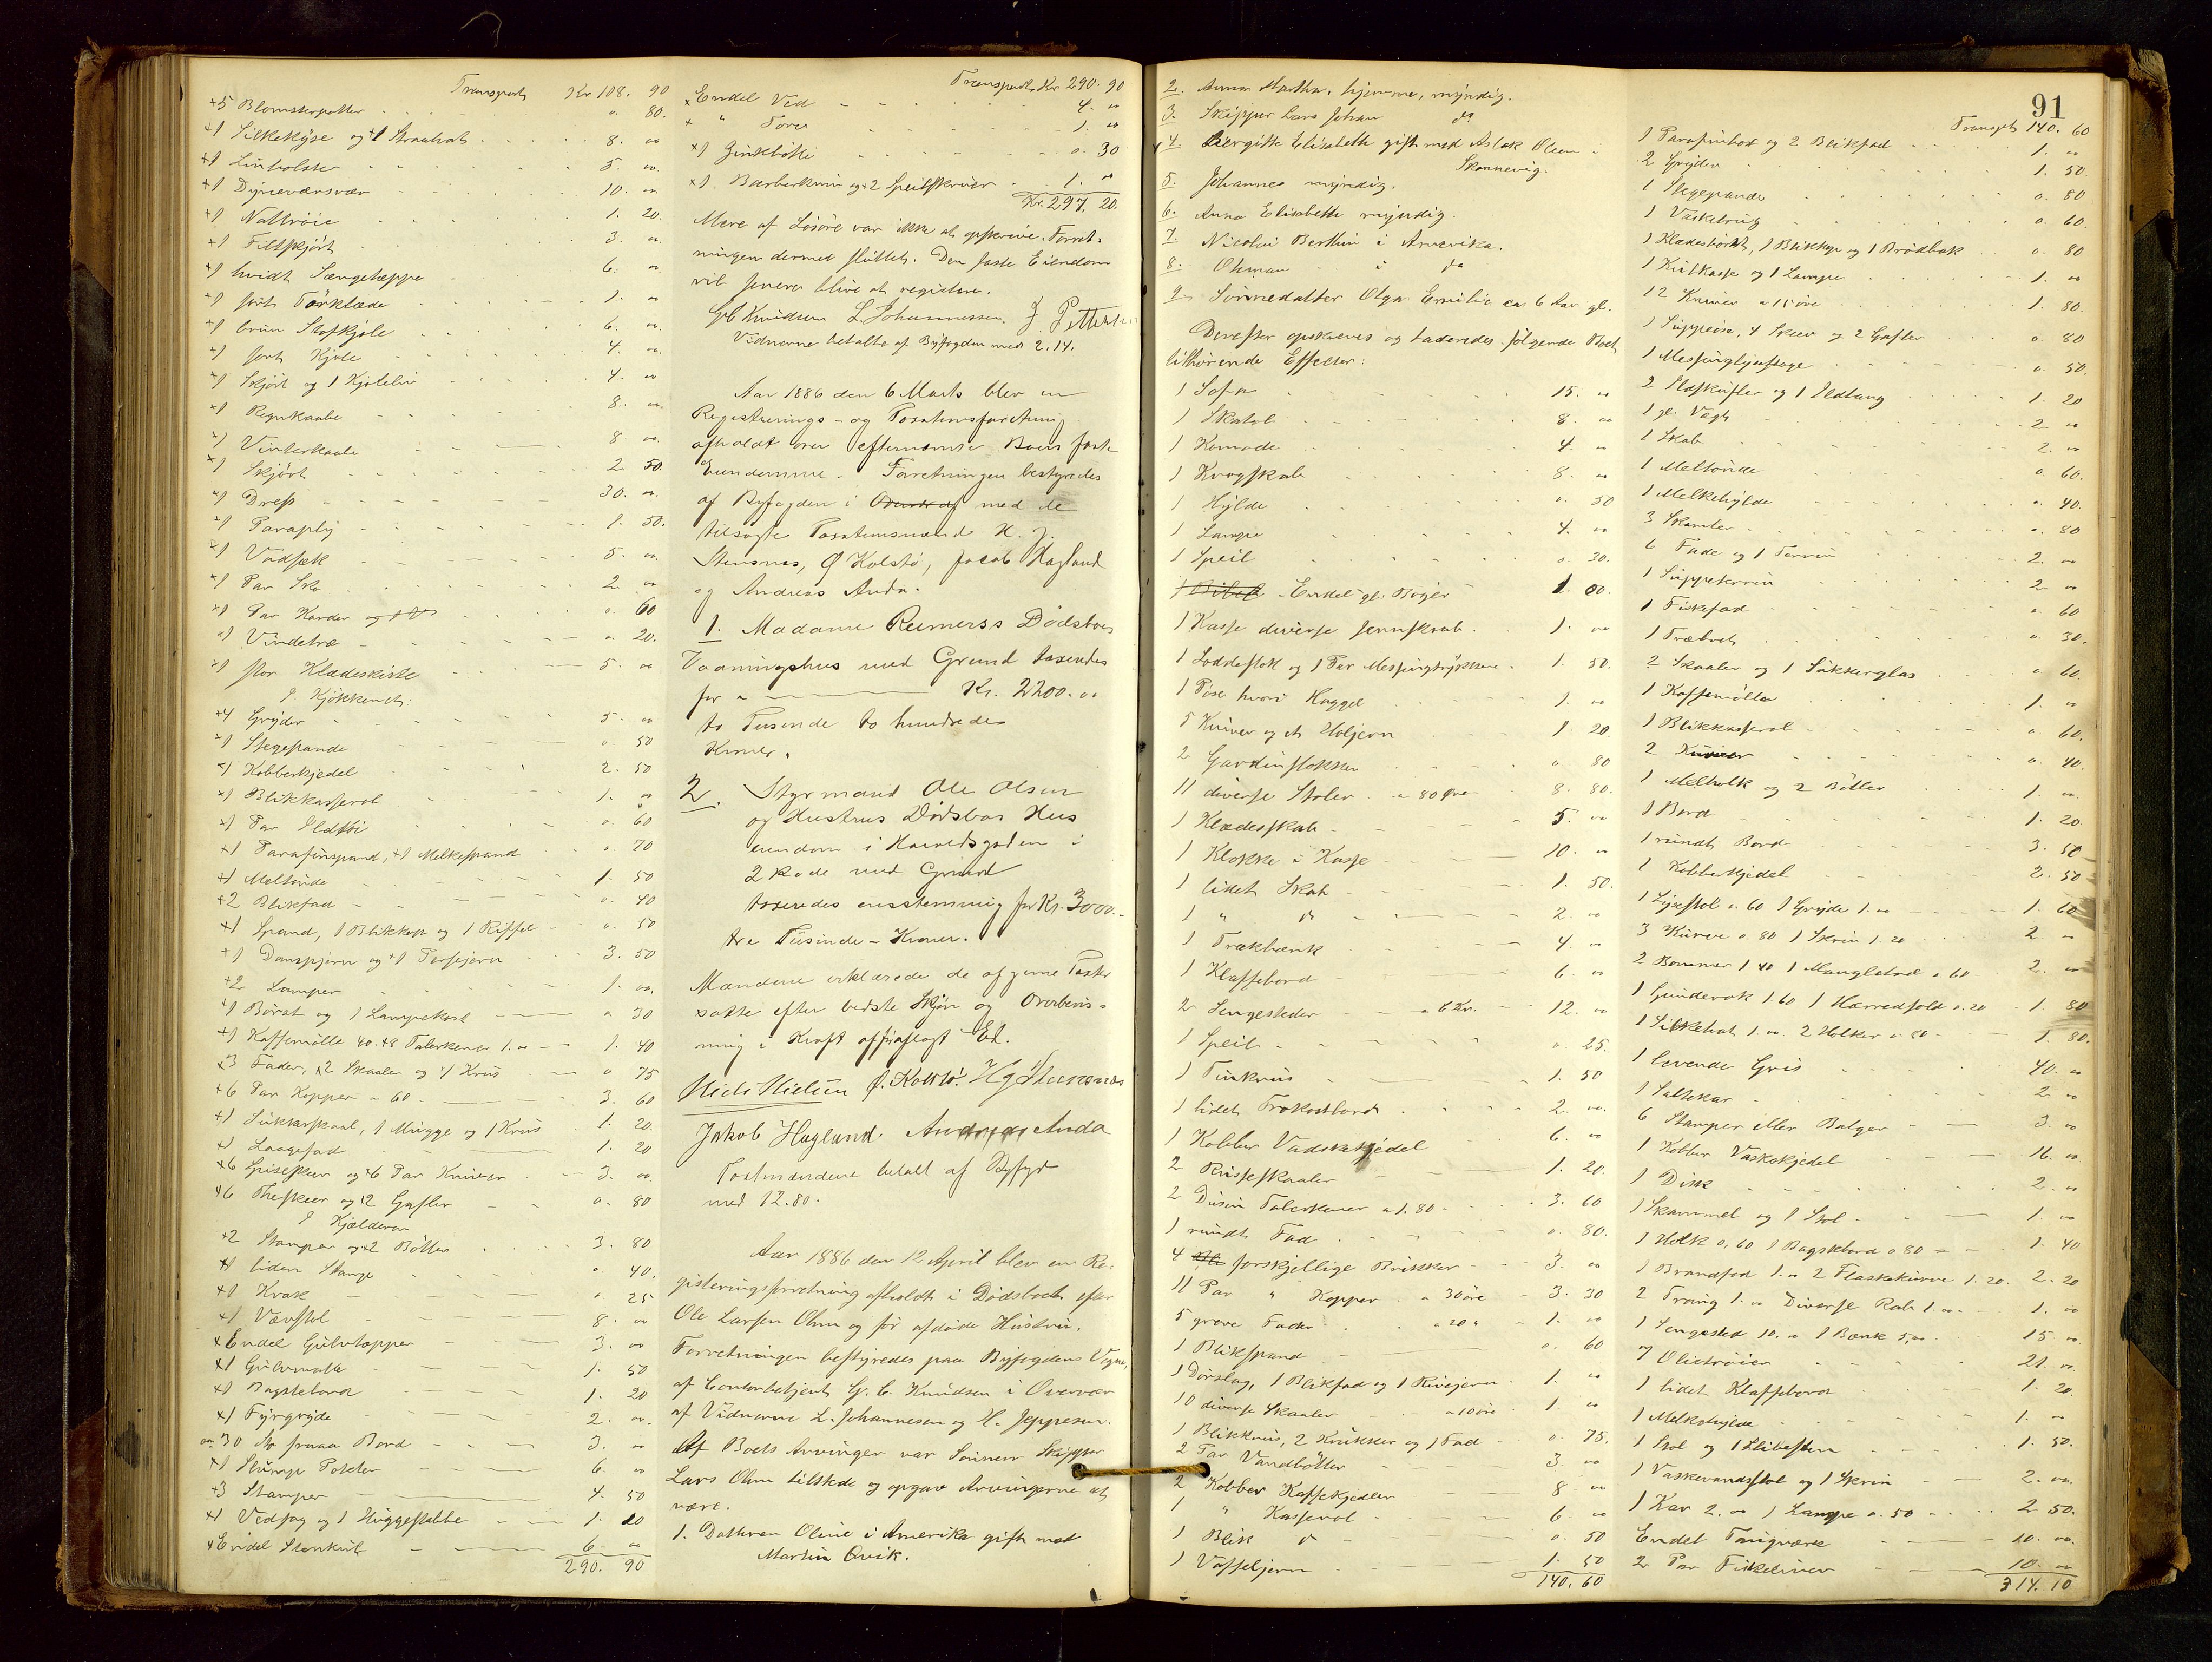 Transport Kr 108. 90
+5 Blomsterpotter 0. 80.
+1 Silkekyse og +1 Straahat 8. 00
+1 Linholster 5. 00
+1 Dynevarsvær 10. 00
+1 Nattröie 1. 20.
+1 Filtskjört 3. 00
+1 hvidt Sængetæppe 6. 00
+1 sort Törklæde 1. 00
+1 brun Stofkjole 6. 00
+1 sort Kjole 4. 00
+1 Skjört og 1 Kjoleliv 4. 00
+1 Regnkaabe 8. 00
+1 Vinterkaabe 8. 00
+1 Skjört 2. 50
+1 Dress 30. 00
+1 Paraply 1. 50.
+1 Vadsæk 5. 00
+1 Par Sko 2. 00
+1 Par Karder 0. 60
+1 Vindetræ 0. 20.
+1 stor Klædeskiste 5. 00
I Kjökkenet:
+4 Gryder 5. 00
+1 Stegepande 0. 50
+1 Kobberkjedel 2. 50
+1 Blikkasserol 1. 00
+1 Par Ildtöi 0. 60
+1 Parafinspand, +1 Melkespand 0. 70
+1 Meltönde 1. 50
+2 Blikfad 0. 40
+1 Spand, 1 Blikkop og 1 Riffel 0. 50
+1 Dampjern og +1 Persejern 3. 50
+2 Lamper 1. 00.
+1 Börst og 1 Lampekost 0 30
+1 Kaffemölle 40. +8 Talerkener 1.00 1. 40
+3 Fader, +2 Skaaler og +1 Krus 0 75
+6 Par Kopper a 60 3. 60
+1 Sukkerskaal, 1 Mugge og 1 Krus 1. 20.
+1 Laagefad 1. 20
+6 Spiseskeer og +6 Par Kniver 3. 00
+6 Theskeer og +2 Gafler 0. 80
I Kjælderen
+2 Stamper og +2 Bötter 3. 80
+1 liden Stampe 0. 40.
+1 Krak 0. 25
+1 Vævstol 8. 00
+Endel Gulvtæpper 3. 00
+1 Gulvmatte 1. 50
+1 Bagstebord 1. 20
+1 Fyrgryde 2. 00.
30 St smaa Bord 3. 00
+1 Slump Poteter 6. 00
+3 Stamper 4. 50
+1 Vedsag og 1 Huggestabbe 1. 20
+Endel Stenkul 6. 00
290. 90
Transport Kr. 290. 90
x Endel Ved 4. 00
+ " Törv 1. 00
x1 Zinkbötte 0. 30
x1 Barberkniv og +2 Speilskruer 1. 00
Kr. 297. 20.
Mere af Lösöre var ikke at opskrive. Forret-
ningen dermed sluttet. Den faste Eiendom
vil senere blive at registere.
GC Knudsen L. Johannessen. J. Pettersen
Vidnerne betalte af Byfogden med 2.14.
Aar 1886 den 6 Marts blev en
Registrerings- og Taxationsforretning
afholdt over efternævnte Boers faste
Eiendomme. Forretningen bestyredes
af Byfogden i med de
tilsagte Taxationsmænd H. J.
Stensnes, Ø Kolstø, Jacob Hagland
og Andreas Anda.
1. Madame Reimerss Dödsboes
Vaaningshus med Grund taxeredes
for a Kr. 2200. 00
to Tusinde to hundrede
Kroner.
2. Styrmand Ole Olsen
og Hustrus Dödsbos Hus
eiendom i Haraldsgaden i
2 Rode med Grund
taxeredes eenstemmig for Kr. 3000.-
tre Tusinde - Kroner.
Mændene erklærede de afgivne Taxter
satte efter bedste Skjön og Overbevis-
ning i Kraft af aflagt Ed.
Niels Nielsen Ø. Kolstø. HJ Stensnes
Jakob Hagland. Andreas Anda
Taxtmændene betalt af Byfogd
med 12.80.
Aar 1886 den 12 April blev en Re-
gisteringsforretning afholdt i Dödsboet efter
Ole Larsen Ohm og för afdöde Hustru.
Forretningen bestyredes paa Byfogdens Vegne,
af Contorbetjent G. C. Knudsen i Overvær
af Vidnerne L. Johannesen og H. Jeppesen.
Af Boets Arvinger var Sönnen Skipper
Lars Ohm tilstede og opgav Arvingerne at
være.
1. Datteren Oline i Amerika gift med
Martin Qvik.
91
2. Anna Martha, hjemme, myndig.
3. Skipper Lars Johan do
4. Bergitte Elisabeth gift med Aslak Olsen i
Skonnevig.
5. Johannes myndig.
6. Anna Elisabeth myndig.
7. Nicolai Berthin i Amerika.
8. Ohman i do
9. Sönnedatter Olga Emilie ca 6 Aar gl.
Derefter opskreves og taxeredes fölgende Boet
tilhörende Effecter:
1 Sofa 15. 00
1 Skatol 8. 00
1 Komode 4. 00
1 Krogskab 8. 00
1 Hylde 0. 50
1 Lampe 4. 00
1 Speil 0. 30.
1 Bibel Endel gl. Böger 1. 00.
1 Kasse diverse Jernskrab 1. 00
1 Loddestok og 1 Par Messingtrykkere 1. 50.
1 Pose hvori Haggel 1. 00
5 Kniver og et Höljern 1. 20.
2 Gardinstokker 0. 80
11 diverse Stoler a 80 Öre 8. 80.
1 Klædesskab 5. 00
1 Klokke i Kasse 10. 00
1 lidet Skab 1. 50.
1 " do 2. 00
1 Trækbænk 4. 00
1 Klaffebord 6. 00
2 Sengesteder a 6 Kr. 12. 00
1 Speil 0. 25.
1 Tinkrus 1. 50
1 lidet Frokostbord 2. 00.
1 Kobber Vadskekjedel 6. 00
2 Risseskaaler 1. 20.
2 Dusin Talerkener a 1.80 3. 60
1 rundt Fad 0. 80.
4 forskjellige Brikker 3. 00
11 Par " Kopper a 30 öre 3. 30
5 grove Fader a 20 " 1. 00
1 Blikspand 0. 60
1 Dörslag, 1 Blikfad og 1 Rivejern 1. 00
10 diverse Skaaler a 10 öre 1. 00
1 Blikkrus, 2 Krukker og 1 Fad 0. 75.
2 Par Vandbötter 3. 00
2 Kobber Kaffekjedler 8. 00
1 " Kasserol 6. 00
1 Blik do 0. 50
1 Vaffeljern 1. 50
140. 60
Transpt 140. 60
1 Parafinbox og 2 Blikfad 1. 00
2 Gryder 1. 50.
1 Stegepande 0. 80
1 Vasketrug 0. 60
1 Klædesbörst, 1 Blikkop og 1 Brödbak 0. 80
1 Kulkasse og 1 Lampe 1. 00
12 Kniver a 15 öre 1. 80.
1 Suppeöse, 4 Skeer og 2 Gafler 0. 80
1 Messinglysestage 0. 50.
2 Ildskufler og 1 Ildtang 1. 20
1 gl. Vægt 2. 00
1 Skab 2. 00
1 Meltönde 0. 60.
1 Melkehylde 0. 40.
3 Skamler 0. 80
6 Fade og 1 Terrin 2. 00
1 Suppeterrin 2. 00
1 Fiskefad 0. 60
1 Træbret 0. 30.
2 Skaaler og 1 Sukkerglas 0. 60.
1 Kaffemölle 1. 00
1 Blikkasserol 0. 60.
2 Kniver 0. 40.
1 Melholk og 2 Bötter 1. 00
1 Bord 1. 20.
1 rundt Bord 3. 50
1 Kobberkjedel 2. 50
1 Lysestol 0.60 1 Gryde 1.00 1. 60
3 Kurve 0.80 1 Skrin 1.20 2. 00
2 Bommer 1 40 1 Mangletræ 0.60 2. 00
1 1.60 1 0.20 1. 80
1 Silkehat 1.00 2 Holker 0.80 1. 80.
1 levende Gris 40. 00
1 Saltekar 2. 00
6 Stamper eller Balger 3. 00
1 Kobber Vaskekjedel 16. 00
1 Disk 2. 00
1 Skammel og 1 Stol 1. 00
1 Holk 0,60 1 Bagstebord 0 80 1. 40
1 Brandfad 1.00 2 Flaskekurve 1.20. 2. 20
2 Traug 1.00 Diverse Rab 1.00 1. 00
1 Sengested 10.00 1 Bænk 5,00 15 00
7 Olietröier 21. 00
1 lidet Klaffebord 1. 20.
1 Melkehylde 1. 00
1 Stol og 1 Slibesten 1. 50.
1 Vaskevandsstol og 1 Skrin 2. 00.
1 Kar 2.00 1 Lampe 0.50 2 50.
Endel Taugværk 20. 00.
2 Par Fiskeliner 10. 00
314. 10